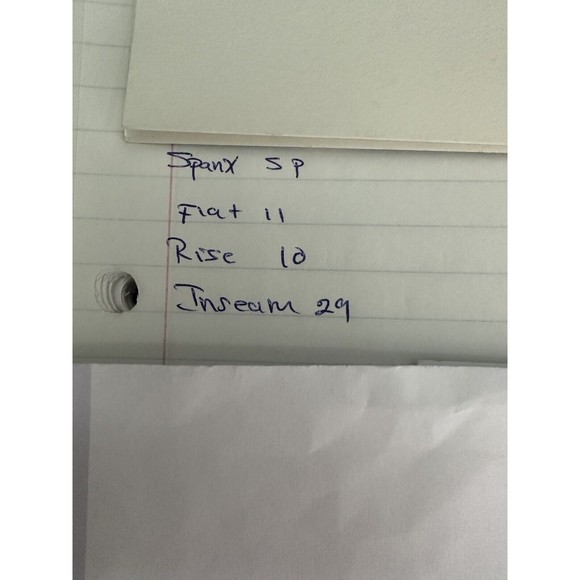 Spanx SP
Flat 11
Rise 10
Inseam 29